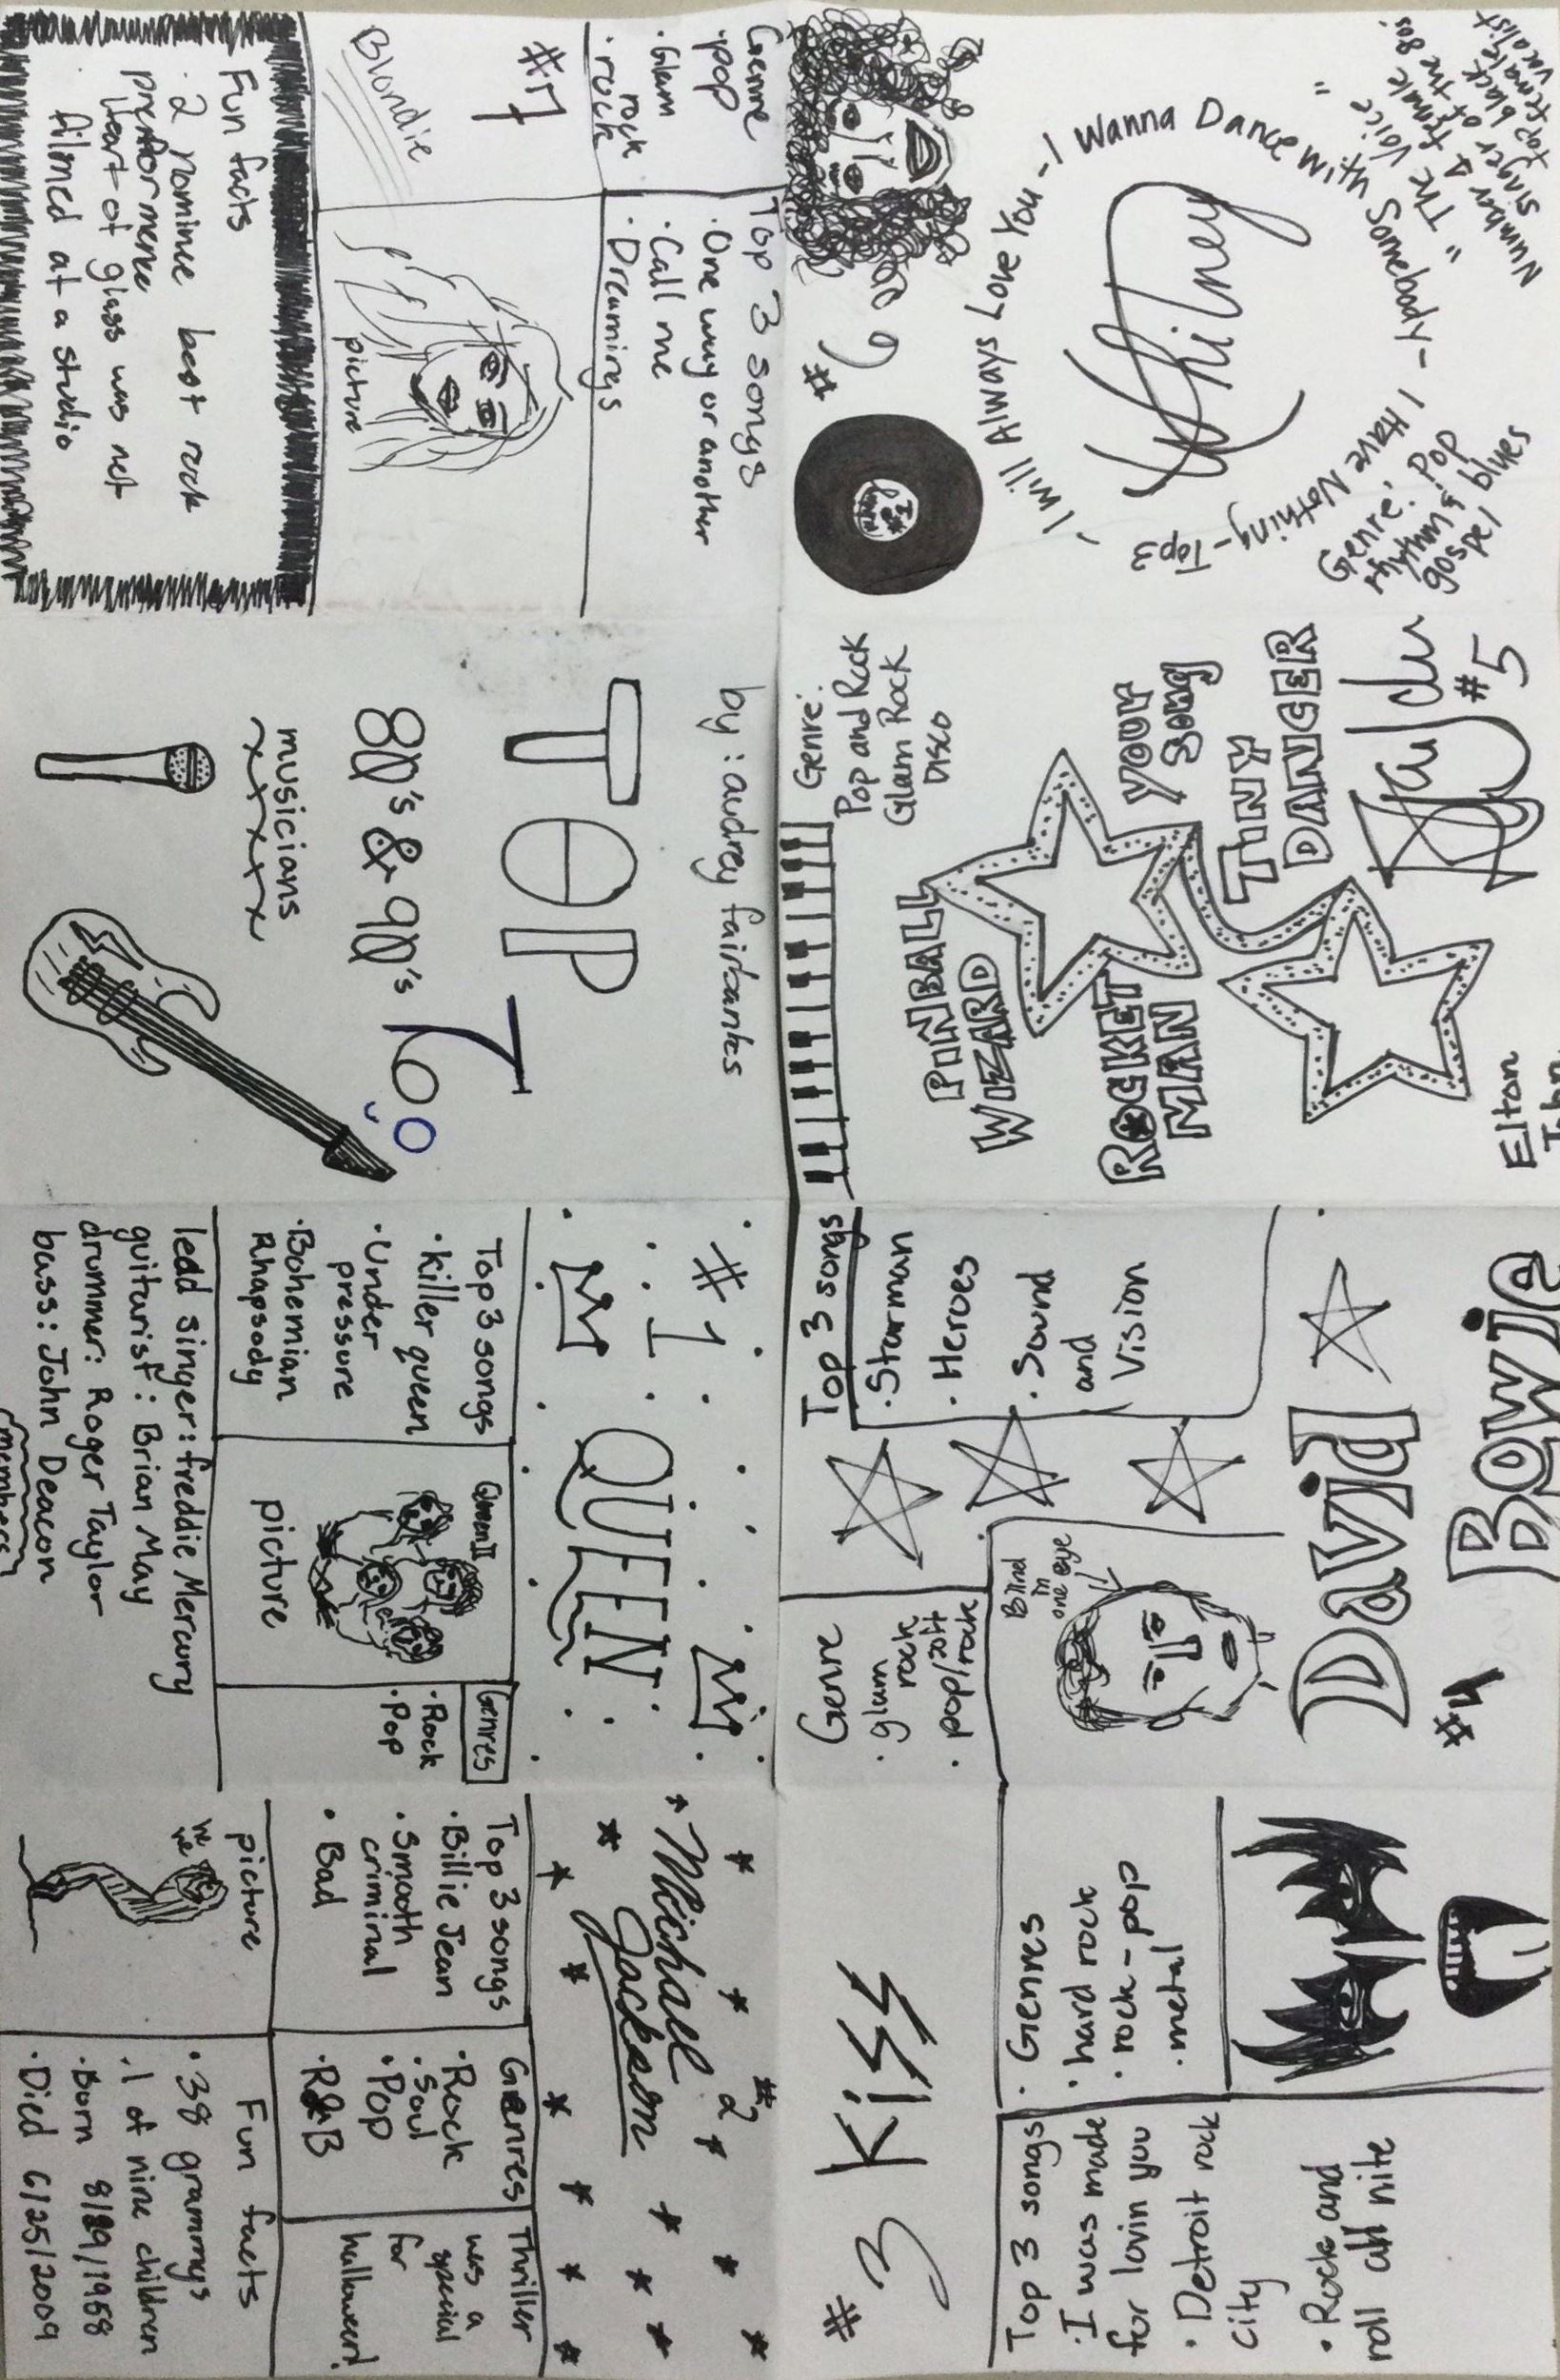 by: audrey fairbanks
TOP
7
80's & 90's
musicians
#1
QUEEN
Top 3 songs
·Killer queen
·Under
pressure
·Bohemian
Rhapsody
Queen II
picture
Genres
·Rock
·Pop
ledd singer: freddie Mercury
guitarist: Brian May
drummer: Roger Taylor
bass: John Deacon
members
#2
Michael
Jackson
Top 3 songs
·Billie Jean
·Smooth
criminal
·Bad
Genres
·Rock
·Soul
·Pop
·R&B
Thriller
was a
special
for
halloween!
picture
he
he
Fun facts
·38 grammys
·1 of nine children
·Born 8/29/1958
·Died 6/25/2009
#3 KISS
·Genres
·hard rock
·rock-pop
·metal
Top 3 songs
·I was made
for lovin you
·Detroit rock
city
·Rock and
roll all nite
#4
David
Bowie
Top 3 songs
·Starman
·Heroes
·Sound
and
Vision
Blind
in
one eye
Genre
·glam
rock
·pop/soft
rock
#5
Elton
John
TINY
DANCER
YOUR
SONG
ROCKET
MAN
PINBALL
WIZARD
Genre:
Pop and Rock
Glam Rock
Disco
#6
Whitney
I Will Always Love You - I Wanna Dance With Somebody - I Have Nothing - Top 3
"The Voice"
Number 1 female
singer of the 80s'
top black
female
vocalist
Genre: Pop
rhythm & blues
gospel
Genre
·pop
·Glam
rock
·rock
Top 3 songs
·One way or another
·Call me
·Dreamings
#7
Blondie
picture
Fun facts
·2 nominee best rock
preformence
heart of glass was not
filmed at a studio